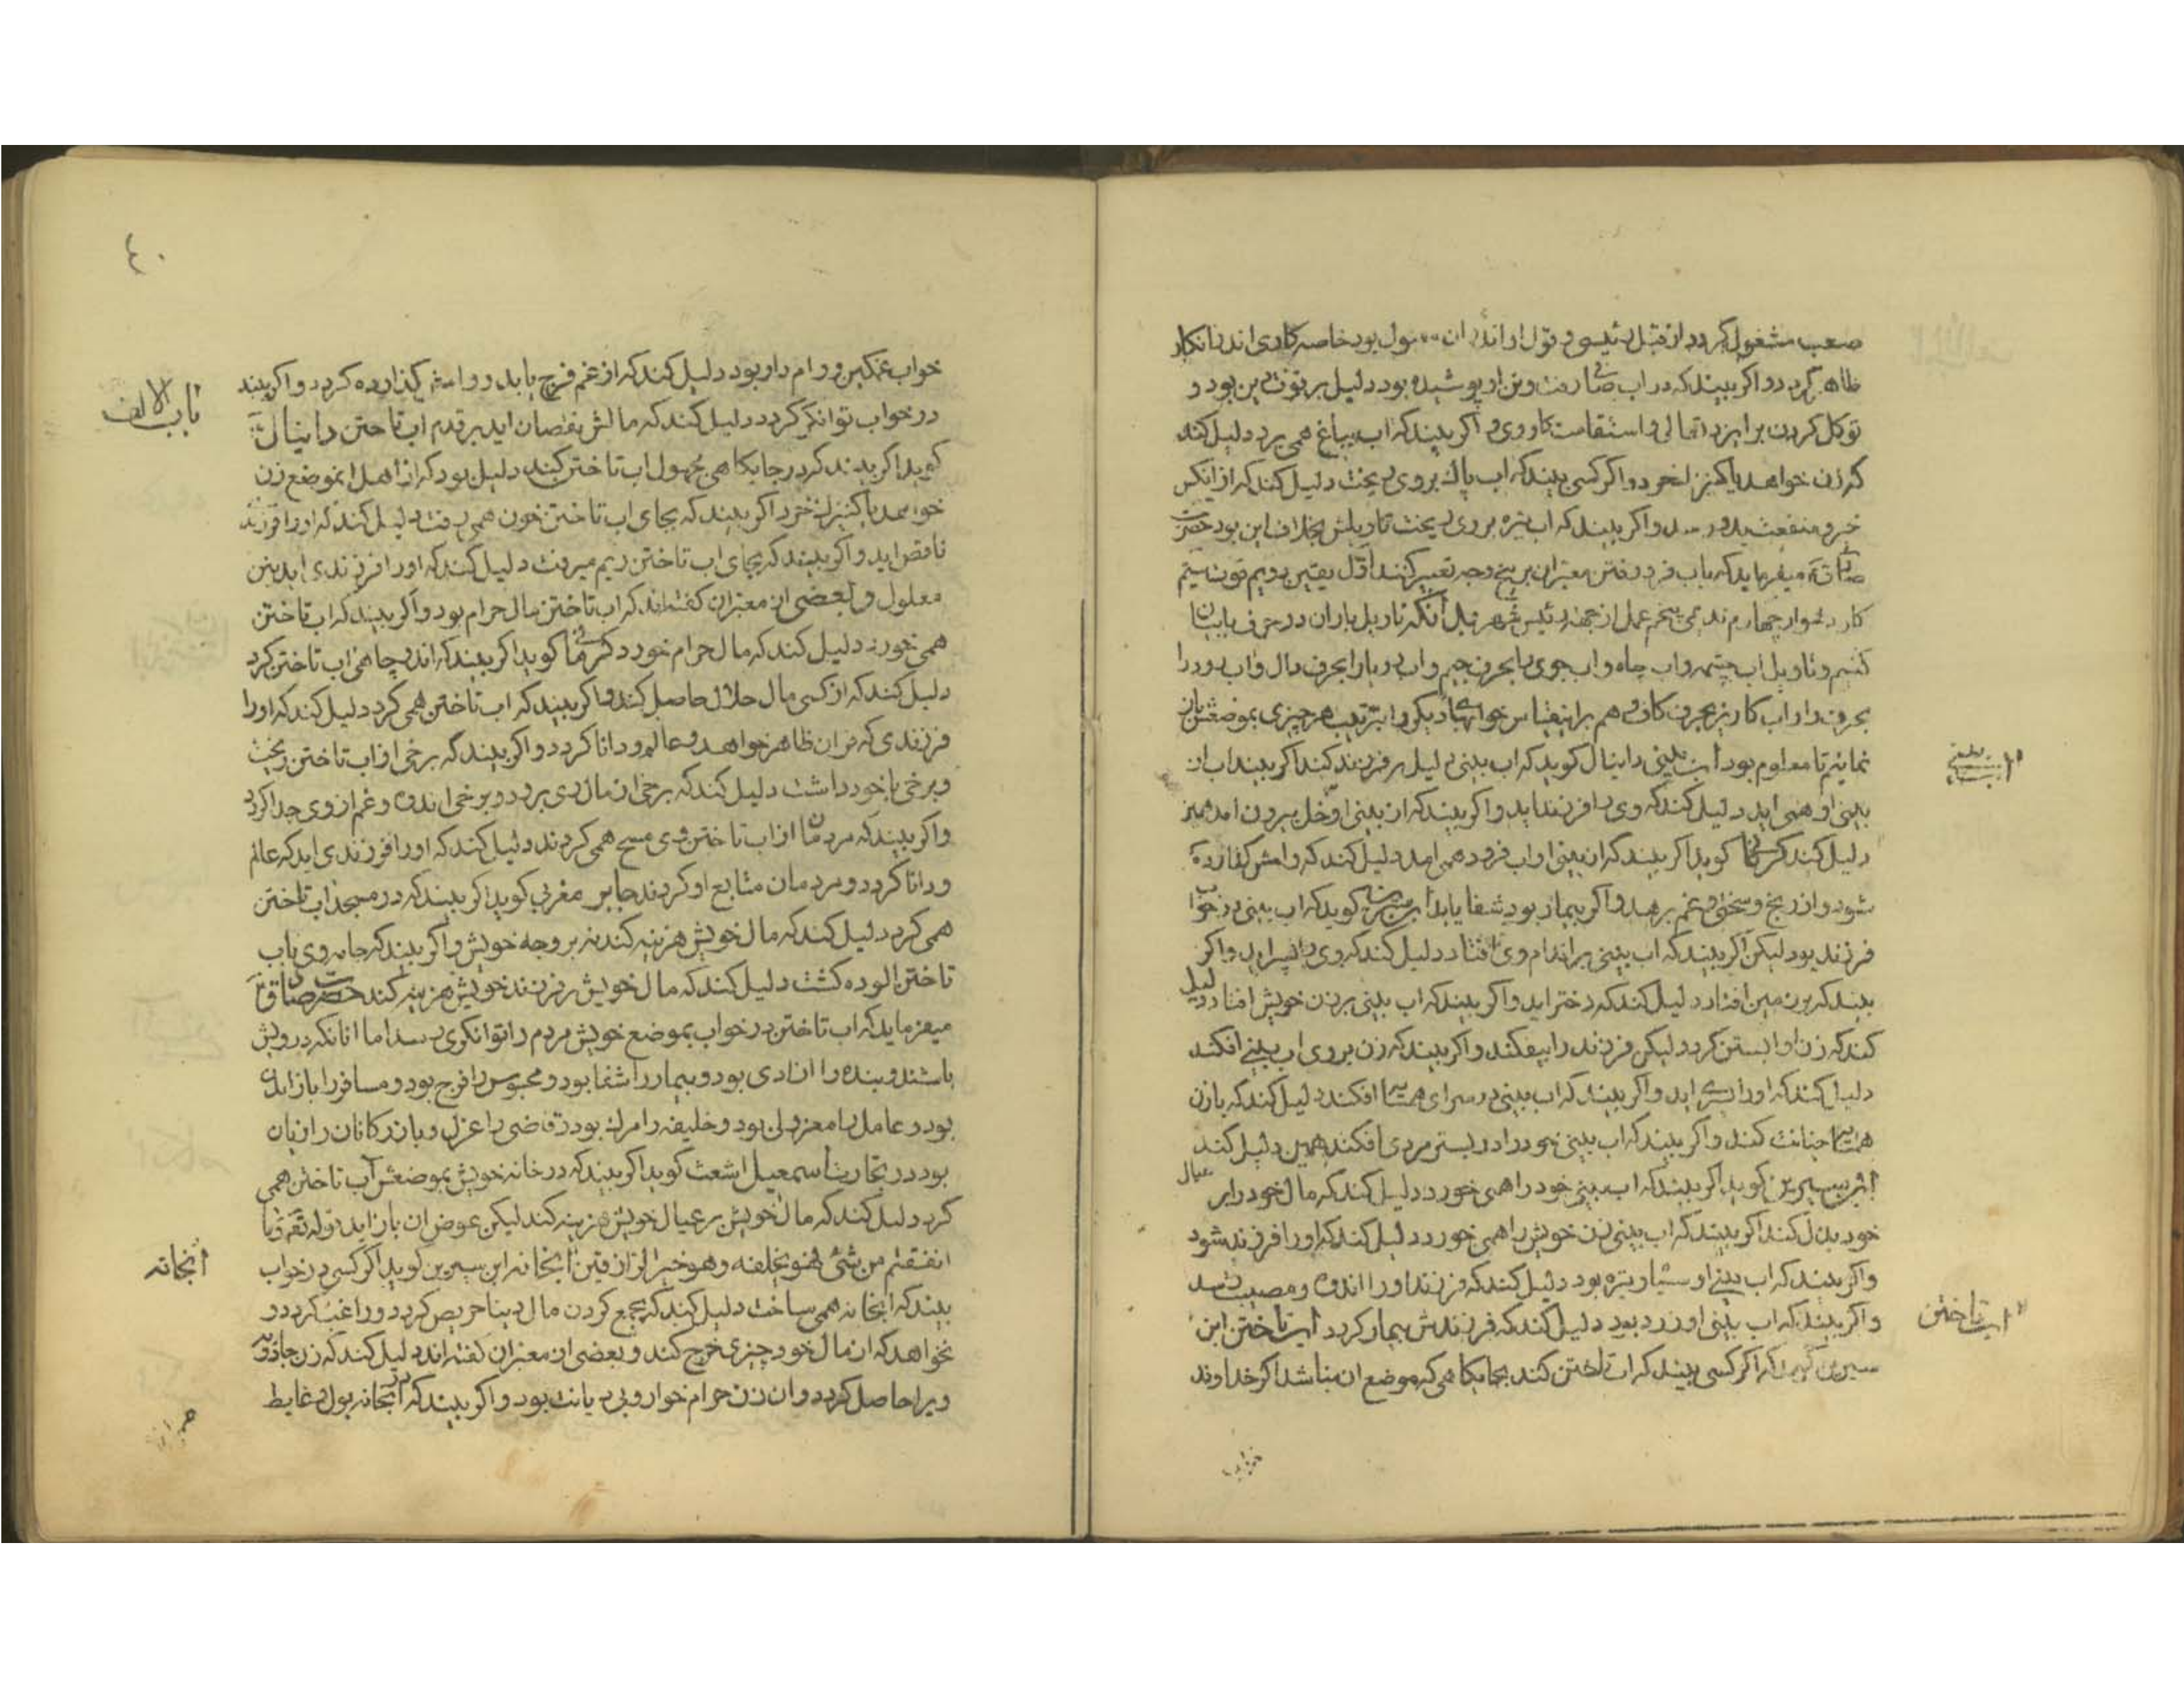 صعب مشغول کردد از قبل رئیسی و قول او اندر ان بود خاصه کاری اندر انکار
ظاهر کردد و اکر بیند که در اب صافی رفت و تن او پوشیده بود دلیل بر قوت دین بود و
توکل کردن بر ایزد تعالی و استقامت کار وی و اکر بیند که اب بباغ همی برد دلیل کند
که زن خواهد یا کنیزک خرد و اکر کسی بیند که اب پاک بروی ریخت دلیل کند که از انکس
خیر و منفعت بدو رسد و اکر بیند که اب تیره بر وی ریخت تاویلش بخلاف این بود حضرت
صادق میفرماید که باب فرو رفتن معبران بر پنج وجه تعبیر کنند اول یقین دویم قوت سیم
کار دشوار چهارم ندیمی پنجم عمل از جهة رئیس شهر بدانکه تاویل باران در حرف با بیان
کنیم و تاویل اب چشمه و اب چاه و اب جوی را بحرف جیم و اب دریا را بحرف دال و اب رود را
بحرف را و اب کاریز بحرف کاف و هم براینقیاس خوابهای دیکر را بترتیب هر چیزی بموضعش بیان
نمائیم تا معلوم بود اب بینی دانیال کوید که اب بینی دلیل بر فرزند کند اکر بیند اب از
بینی او همی اید دلیل کند که وی را فرزند اید و اکر بیند که از بینی او خل بیرون امد نیز
دلیل کند کرمانی کوید اکر بیند که از بینی او اب فرود همی امد دلیل کند که وامش کذارده
شود و از رنج و سختی و غم برهد و اکر بیمار بود شفا یابد ابن سیرین کوید که اب بینی در خواب
فرزند بود لیکن اکر بیند که اب بینی بر اندام وی افتاد دلیل کند که وی را پسر اید و اکر
بیند که بر زمین افتاد دلیل کند که دختر اید و اکر بیند که اب بینی بر زن خویش افتاد دلیل
کند که زن او ابستن کردد ولیکن فرزند را بیفکند و اکر بیند که زن بر وی اب بینی افکند
دلیل کند که او را پسری اید و اکر بیند که اب بینی در سرای همسایه افکند دلیل کند که با زن
همسایه خیانت کند و اکر بیند که اب بینی خود را در بستر مردی افکند همین دلیل کند
ابن سیرین کوید اکر بیند که اب بینی خود را همی خورد دلیل کند که مال خود را بر عیال
خود بذل کند اکر بیند که اب بینی زن خویش را همی خورد دلیل کند که او را فرزند شود
و اکر بیند که اب بینی او سیاه و تیره بود دلیل کند که فرزند او را اندوه و مصیبت رسد
و اکر بیند که اب بینی او زرد بود دلیل کند که فرزندش بیمار کردد اب تاختن ابن
سیرین کوید که اکر کسی بیند که اب تاختن کند بجایکاهی که موضع ان نباشد اکر خداوند
اب بینی
اب تاختن
خواب
٤٠
باب الالف
خواب غمکین و وام دار بود دلیل کند که از غم فرج یابد و وامش کذارده کردد و اکر بیند
در خواب توانکر کردد دلیل کند که مالش نقصان اید بر قدر اب تاختن دانیال
کوید اکر بیند که در جایکاهی مجهول اب تاختن کند دلیل بود که از اهل انموضع زن
خواهد یا کنیزک خرد اکر بیند که بجای اب تاختن خون همی رفت دلیل کند که او را فرزند
ناقص اید و اکر بیند که بجای اب تاختن ریم میرفت دلیل کند که او را فرزندی اید بتن
معلول و بعضی از معبران کفته اند که اب تاختن مال حرام بود و اکر بیند که اب تاختن
همی خورد دلیل کند که مال حرام خورد کرمانی کوید اکر بیند که اندر چاهی اب تاختن کرد
دلیل کند که از کسی مال حلال حاصل کند و اکر بیند که اب تاختن همی کرد دلیل کند که او را
فرزندی که قران ظاهر خواهد و عالم و دانا کردد و اکر بیند که برخی از اب تاختن ریخت
و برخی با خود داشت دلیل کند که برخی از مال وی برود و برخی اندوه و غم از وی جدا کردد
و اکر بیند که مردمان از اب تاختن وی مسح همی کردند دلیل کند که او را فرزندی اید که عالم
و دانا کردد و مردمان متابع او کردند جابر مغربی کوید اکر بیند که در مسجد اب تاختن
همی کرد دلیل کند که مال خویش هزینه کند نه بر وجه خویش و اکر بیند که جامه وی باب
تاختن الوده کشت دلیل کند که مال خویش بر فرزند خویش هزینه کند حضرت صادق
میفرماید که اب تاختن در خواب بموضع خویش مردم را توانکری رسد اما انانکه درویش
باشند و بنده را ازادی بود و بیمار را شفا بود و محبوس را فرج بود و مسافر را باز امدن
بود و عامل را معزولی بود و خلیفه را مرک بود و قاضی را عزل و بازرکانان را زیان
بود در تجارت اسمعیل اشعث کوید اکر بیند که در خانه خویش بموضعش اب تاختن همی
کرد دلیل کند که مال خویش بر عیال خویش هزینه کند لیکن عوض ان باز اید قوله تع و ما
انفقتم من شئ فهو یخلفه و هو خیر الرازقین ابخانه ابن سیرین کوید اکر کسی در خواب
بیند که ابخانه همی ساخت دلیل کند که بجمع کردن مال دنیا حریص کردد و راغب کردد و
نخواهد که از مال خود چیزی خرج کند و بعضی از معبران کفته اند دلیل کند که زن جادو
ویرا حاصل کردد و ان زن حرام خوار و بی دیانت بود و اکر بیند که در ابخانه بول و غایط
ابخانه